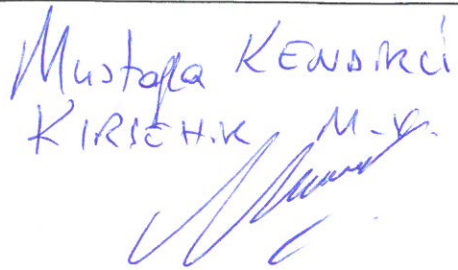 Mustafa KENDİRCİ
KIRŞEHİR M.V.